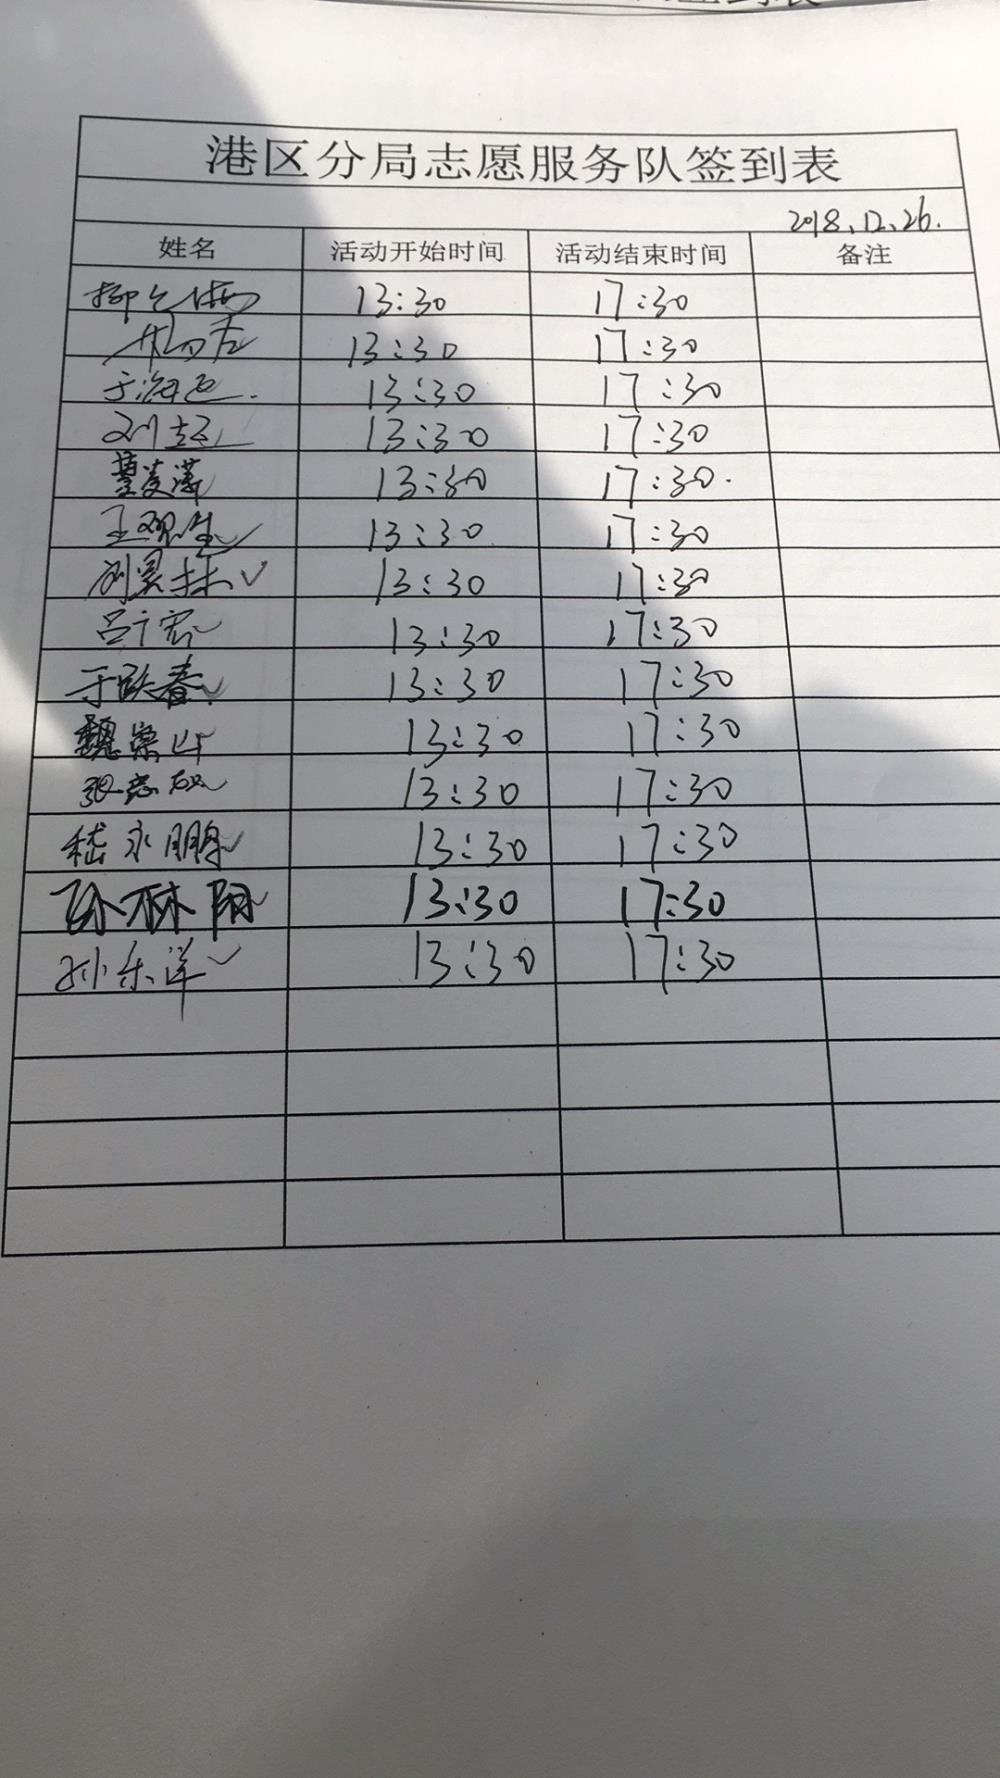 港区分局志愿服务队签到表
2018.12.26.
姓名 活动开始时间 活动结束时间 备注
13:30 17:30
13:30 17:30
于海 13:30 17:30
刘超 13:30 17:30
董麦潇 13:30 17:30
王 13:30 17:30
刘昊林 13:30 17:30
吕广宏 13:30 17:30
于跃春 13:30 17:30
魏崇山 13:30 17:30
张志 13:30 17:30
嵇永鹏 13:30 17:30
孙林阳 13:30 17:30
孙乐洋 13:30 17:30